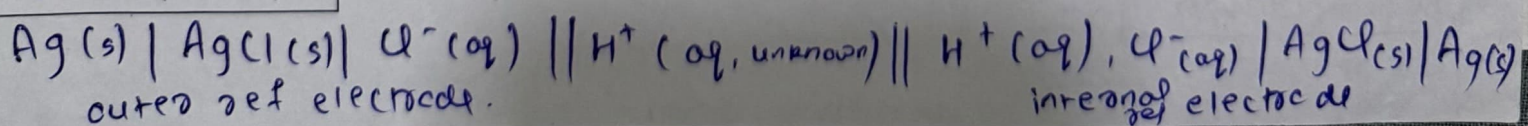 Ag (s) | AgCl (s) | Cl⁻ (aq) || H⁺ (aq, unknown) || H⁺ (aq), Cl⁻(aq) | AgCl(s) | Ag(s)
outer ref elecrocde. internal ref electrc de